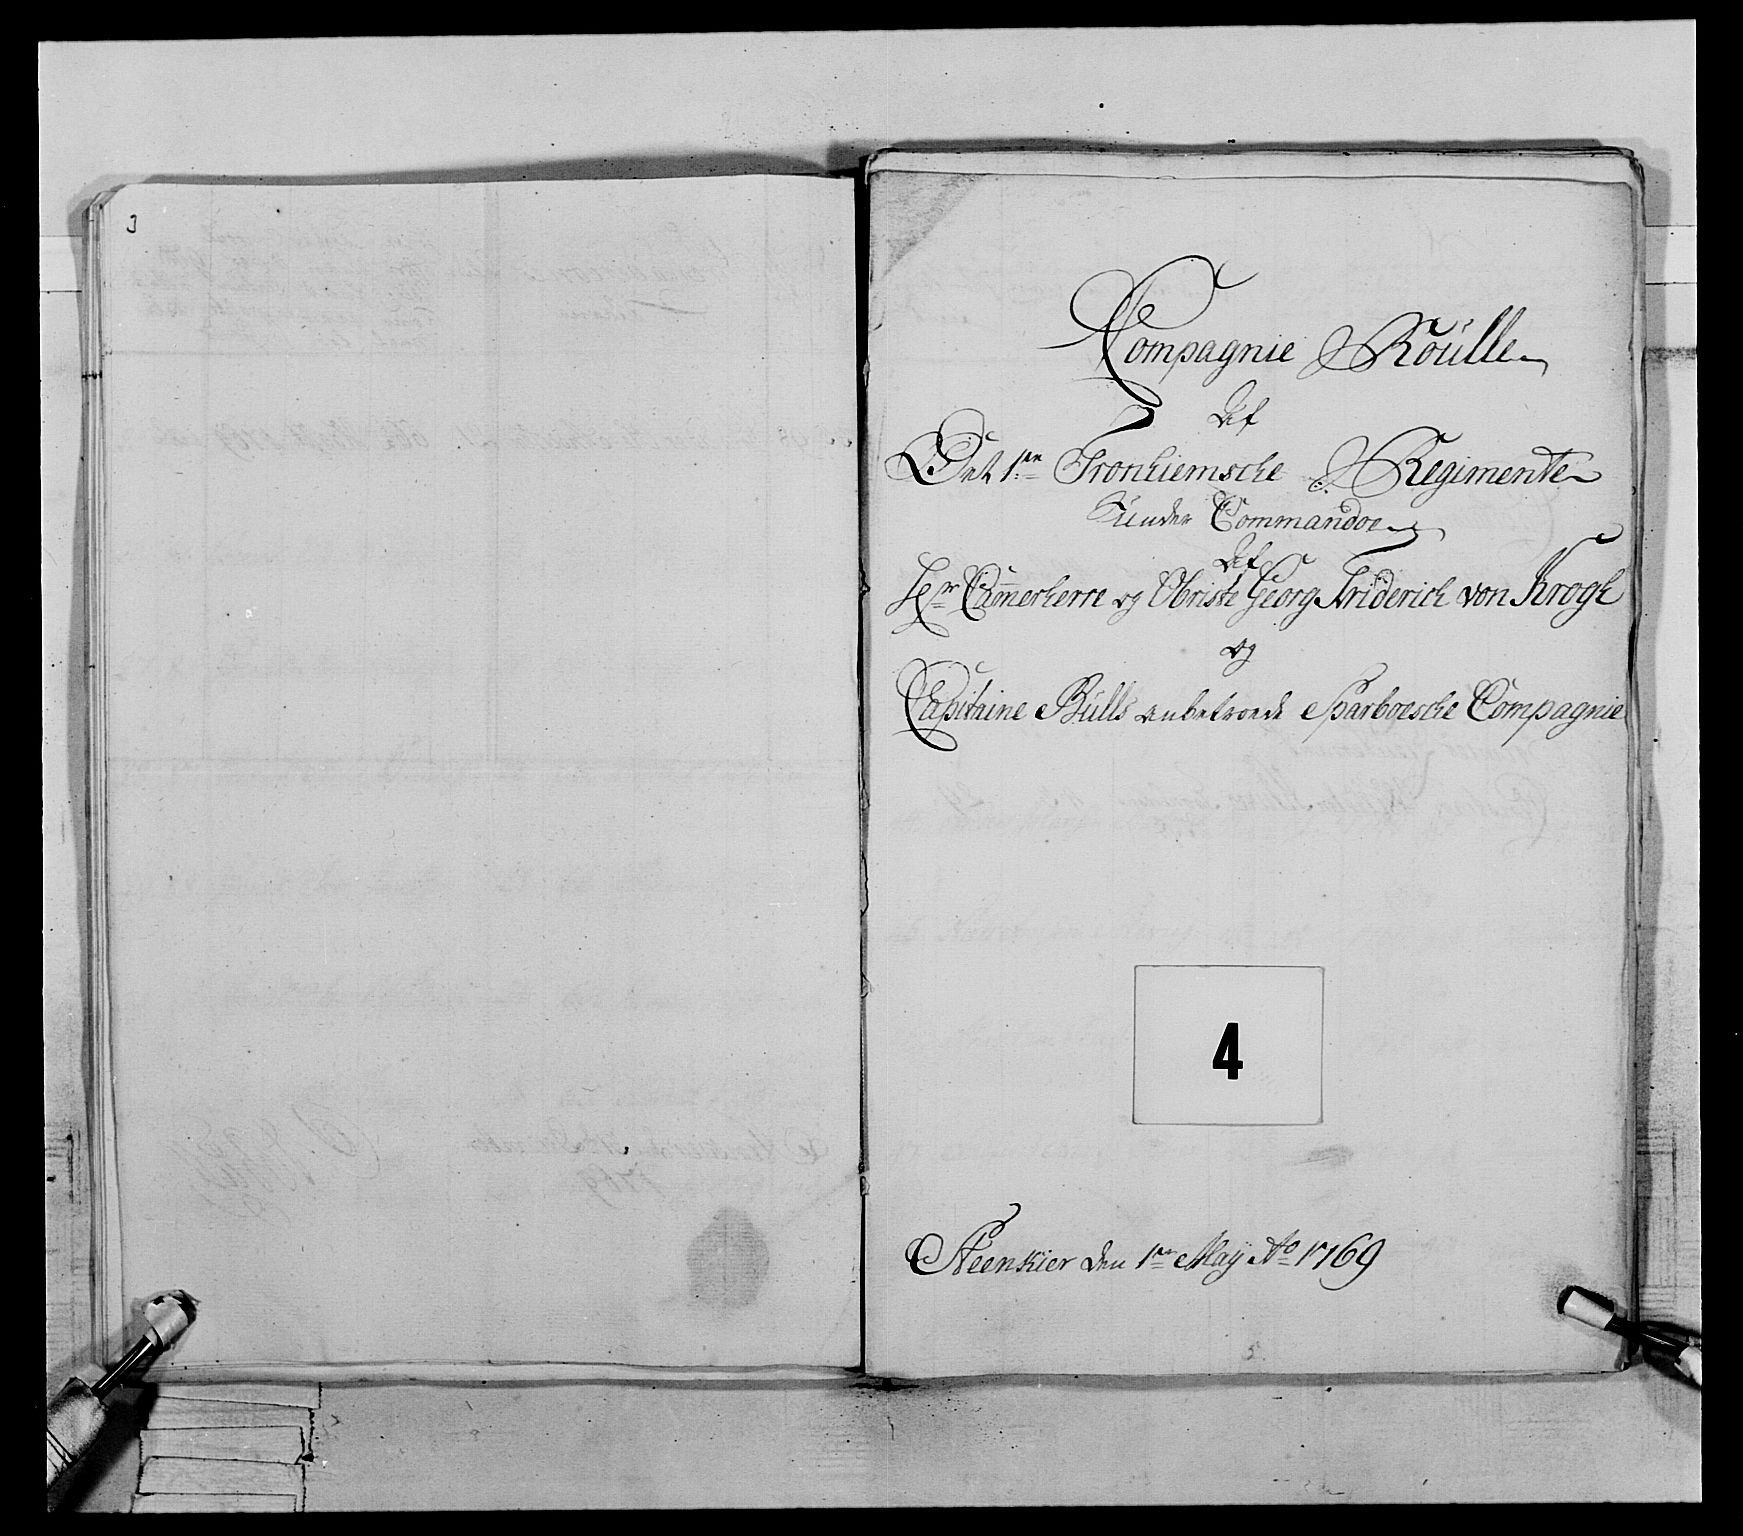 3
Compagnie Roülle
Af
Det 1ste Tronhiemsche Regimente
Under Commandoe
Af
Hr Camerherre og Obriste Georg Friderich von Krogh
og
Capitaine Bülls anbetroede Sparboesche Compagnie
4
Steenkier den 1te Maÿ Ao 1769